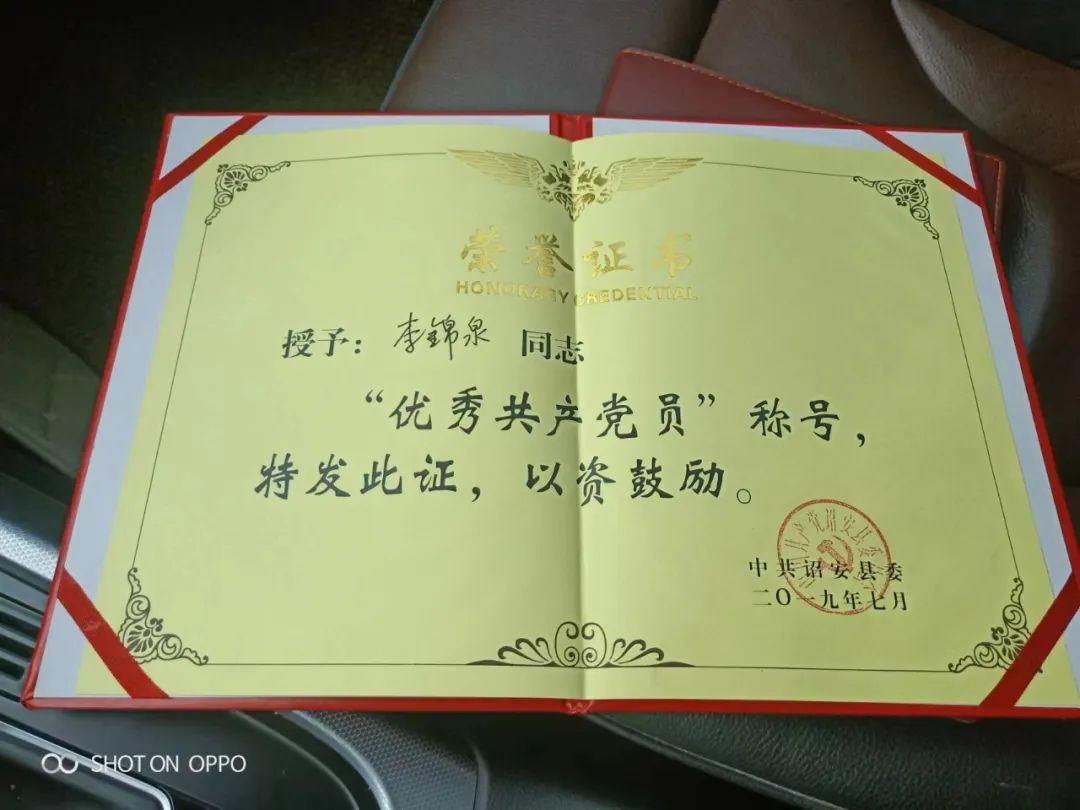 荣誉证书
HONORARY CREDENTIAL
授予：李錦泉 同志
“优秀共产党员”称号，
特发此证，以资鼓励。
中共诏安县委
二〇一九年七月
SHOT ON OPPO